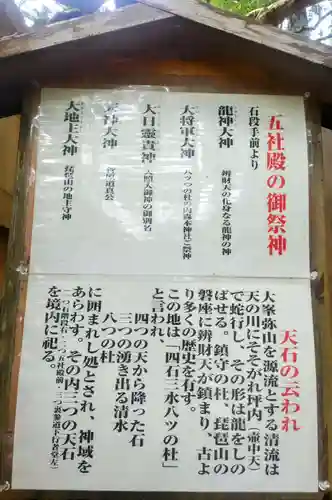 五社殿の御祭神
石段手前より
龍神大神
辨財天の化身なる龍神の神
大将軍大神
八ツの社の内森本神社ご祭神
大日霊貴神
天照大御神の御別名
天神大神
菅原道真公
大地主大神
琵琶山の地主守神
天石の云われ
大峯弥山を源流とする清流は
天の川にそそがれ坪内(壷中天)
で蛇行し、その形は龍をしの
ばせる。鎮守の杜、琵琶山の
磐座に辨財天が鎮まり、古よ
り多くの歴史を有す。
この地は「四石三水八ツの杜」
と言われ、
四つの天から降った石
三つの湧き出る清水
八つの杜
に囲まれし処とされ、神域を
あらわす。その内三つの天石
を境内に祀る。